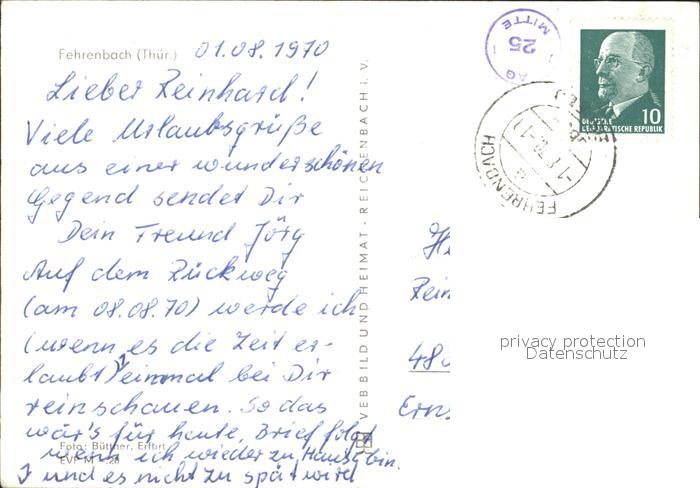 Fehrenbach (Thür.) 01.08.1970
Lieber Reinhard!
Viele Urlaubsgrüße
aus einer wunderschönen
Gegend sendet Dir
Dein Freund Jörg
Auf dem Rückweg
(am 08.08.70) werde ich
(wenn es die Zeit er-
laubt) einmal bei Dir
reinschauen. So das
wär's für heute, Brief folgt
wenn ich wieder zu Hause bin.
und es nicht zu spät wird
Foto: Büttner, Erfurt
VEB BILD UND HEIMAT · REICHENBACH i. V.
MITTE
25
AG
10
DEUTSCHE
DEMOKRATISCHE REPUBLIK
FEHRENBACH
Rein
48
Erns
privacy protection
Datenschutz